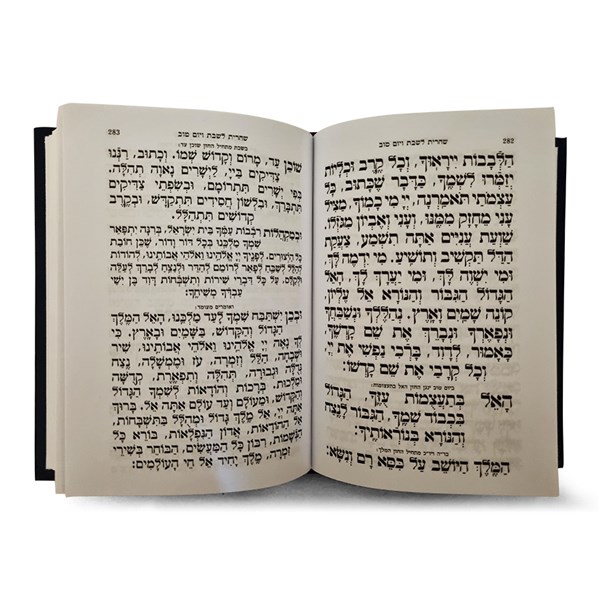 282
שחרית לשבת ויום טוב
הַלְּבָבוֹת יִירָאוּךָ, וְכָל קֶרֶב וּכְלָיוֹת
יְזַמְּרוּ לִשְׁמֶךָ, כַּדָּבָר שֶׁכָּתוּב, כָּל
עַצְמֹתַי תֹּאמַרְנָה, יְיָ מִי כָמוֹךָ, מַצִּיל
עָנִי מֵחָזָק מִמֶּנּוּ, וְעָנִי וְאֶבְיוֹן מִגֹּזְלוֹ.
שַׁוְעַת עֲנִיִּים אַתָּה תִשְׁמַע, צַעֲקַת
הַדַּל תַּקְשִׁיב וְתוֹשִׁיעַ. מִי יִדְמֶה לָּךְ,
וּמִי יִשְׁוֶה לָּךְ, וּמִי יַעֲרָךְ לָךְ. הָאֵל
הַגָּדוֹל הַגִּבּוֹר וְהַנּוֹרָא אֵל עֶלְיוֹן,
קוֹנֵה שָׁמַיִם וָאָרֶץ. נְהַלֶּלְךָ וּנְשַׁבֵּחֲךָ
וּנְפָאֶרְךָ וּנְבָרֵךְ אֶת שֵׁם קָדְשֶׁךָ,
כָּאָמוּר, לְדָוִד, בָּרְכִי נַפְשִׁי אֶת יְיָ,
וְכָל קְרָבַי אֶת שֵׁם קָדְשׁוֹ:
ביום טוב יגנן החזן האל בתעצומות:
הָאֵל בְּתַעֲצֻמוֹת עֻזֶּךָ, הַגָּדוֹל
בִּכְבוֹד שְׁמֶךָ, הַגִּבּוֹר לָנֶצַח
וְהַנּוֹרָא בְּנוֹרְאוֹתֶיךָ:
בר״ה ויו״כ מתחיל החזן המלך:
הַמֶּלֶךְ הַיּוֹשֵׁב עַל כִּסֵּא רָם וְנִשָּׂא:
שחרית לשבת ויום טוב
283
בשבת מתחיל החזן שוכן עד:
שׁוֹכֵן עַד, מָרוֹם וְקָדוֹשׁ שְׁמוֹ. וְכָתוּב, רַנְּנוּ
צַדִּיקִים בַּיְיָ, לַיְשָׁרִים נָאוָה תְהִלָּה.
בְּפִי יְשָׁרִים תִּתְרוֹמָם. וּבְשִׂפְתֵי צַדִּיקִים
תִּתְבָּרַךְ. וּבִלְשׁוֹן חֲסִידִים תִּתְקַדָּשׁ. וּבְקֶרֶב
קְדוֹשִׁים תִּתְהַלָּל.
וּבְמַקְהֲלוֹת רִבְבוֹת עַמְּךָ בֵּית יִשְׂרָאֵל, בְּרִנָּה יִתְפָּאַר
שִׁמְךָ מַלְכֵּנוּ בְּכָל דּוֹר וָדוֹר, שֶׁכֵּן חוֹבַת
כָּל הַיְצוּרִים, לְפָנֶיךָ יְיָ אֱלֹהֵינוּ וֵאלֹהֵי אֲבוֹתֵינוּ, לְהוֹדוֹת
לְהַלֵּל לְשַׁבֵּחַ לְפָאֵר לְרוֹמֵם לְהַדֵּר וּלְנַצֵּחַ לְבָרֵךְ לְעַלֵּה
וּלְקַלֵּס, עַל כָּל דִּבְרֵי שִׁירוֹת וְתִשְׁבְּחוֹת דָּוִד בֶּן יִשַׁי
עַבְדְּךָ מְשִׁיחֶךָ:
ואומרים מעומד:
וּבְכֵן יִשְׁתַּבַּח שִׁמְךָ לָעַד מַלְכֵּנוּ, הָאֵל הַמֶּלֶךְ
הַגָּדוֹל וְהַקָּדוֹשׁ, בַּשָּׁמַיִם וּבָאָרֶץ, כִּי
לְךָ נָאֶה יְיָ אֱלֹהֵינוּ וֵאלֹהֵי אֲבוֹתֵינוּ, שִׁיר
וּשְׁבָחָה, הַלֵּל וְזִמְרָה, עֹז וּמֶמְשָׁלָה, נֶצַח
גְּדֻלָּה וּגְבוּרָה, תְּהִלָּה וְתִפְאֶרֶת, קְדֻשָּׁה
וּמַלְכוּת. בְּרָכוֹת וְהוֹדָאוֹת לְשִׁמְךָ הַגָּדוֹל
וְהַקָּדוֹשׁ, וּמֵעוֹלָם וְעַד עוֹלָם אַתָּה אֵל. בָּרוּךְ
אַתָּה יְיָ, אֵל מֶלֶךְ גָּדוֹל וּמְהֻלָּל בַּתִּשְׁבָּחוֹת,
אֵל הַהוֹדָאוֹת, אֲדוֹן הַנִּפְלָאוֹת, בּוֹרֵא כָּל
הַנְּשָׁמוֹת, רִבּוֹן כָּל הַמַּעֲשִׂים, הַבּוֹחֵר בְּשִׁירֵי
זִמְרָה, מֶלֶךְ יָחִיד אֵל חֵי הָעוֹלָמִים: